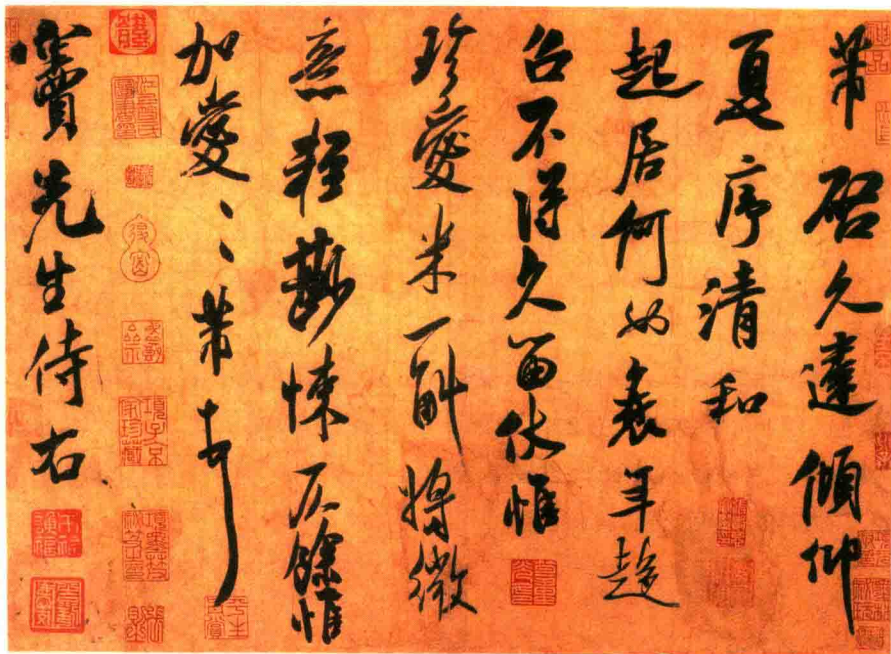 芾啓久違傾仰
夏序清和
起居何如衰年趍
召不得久留伏惟
珍愛米一斛將微
意輕尠悚仄餘惟
加愛〻芾頓首
項子京家珍藏
竇先生侍右